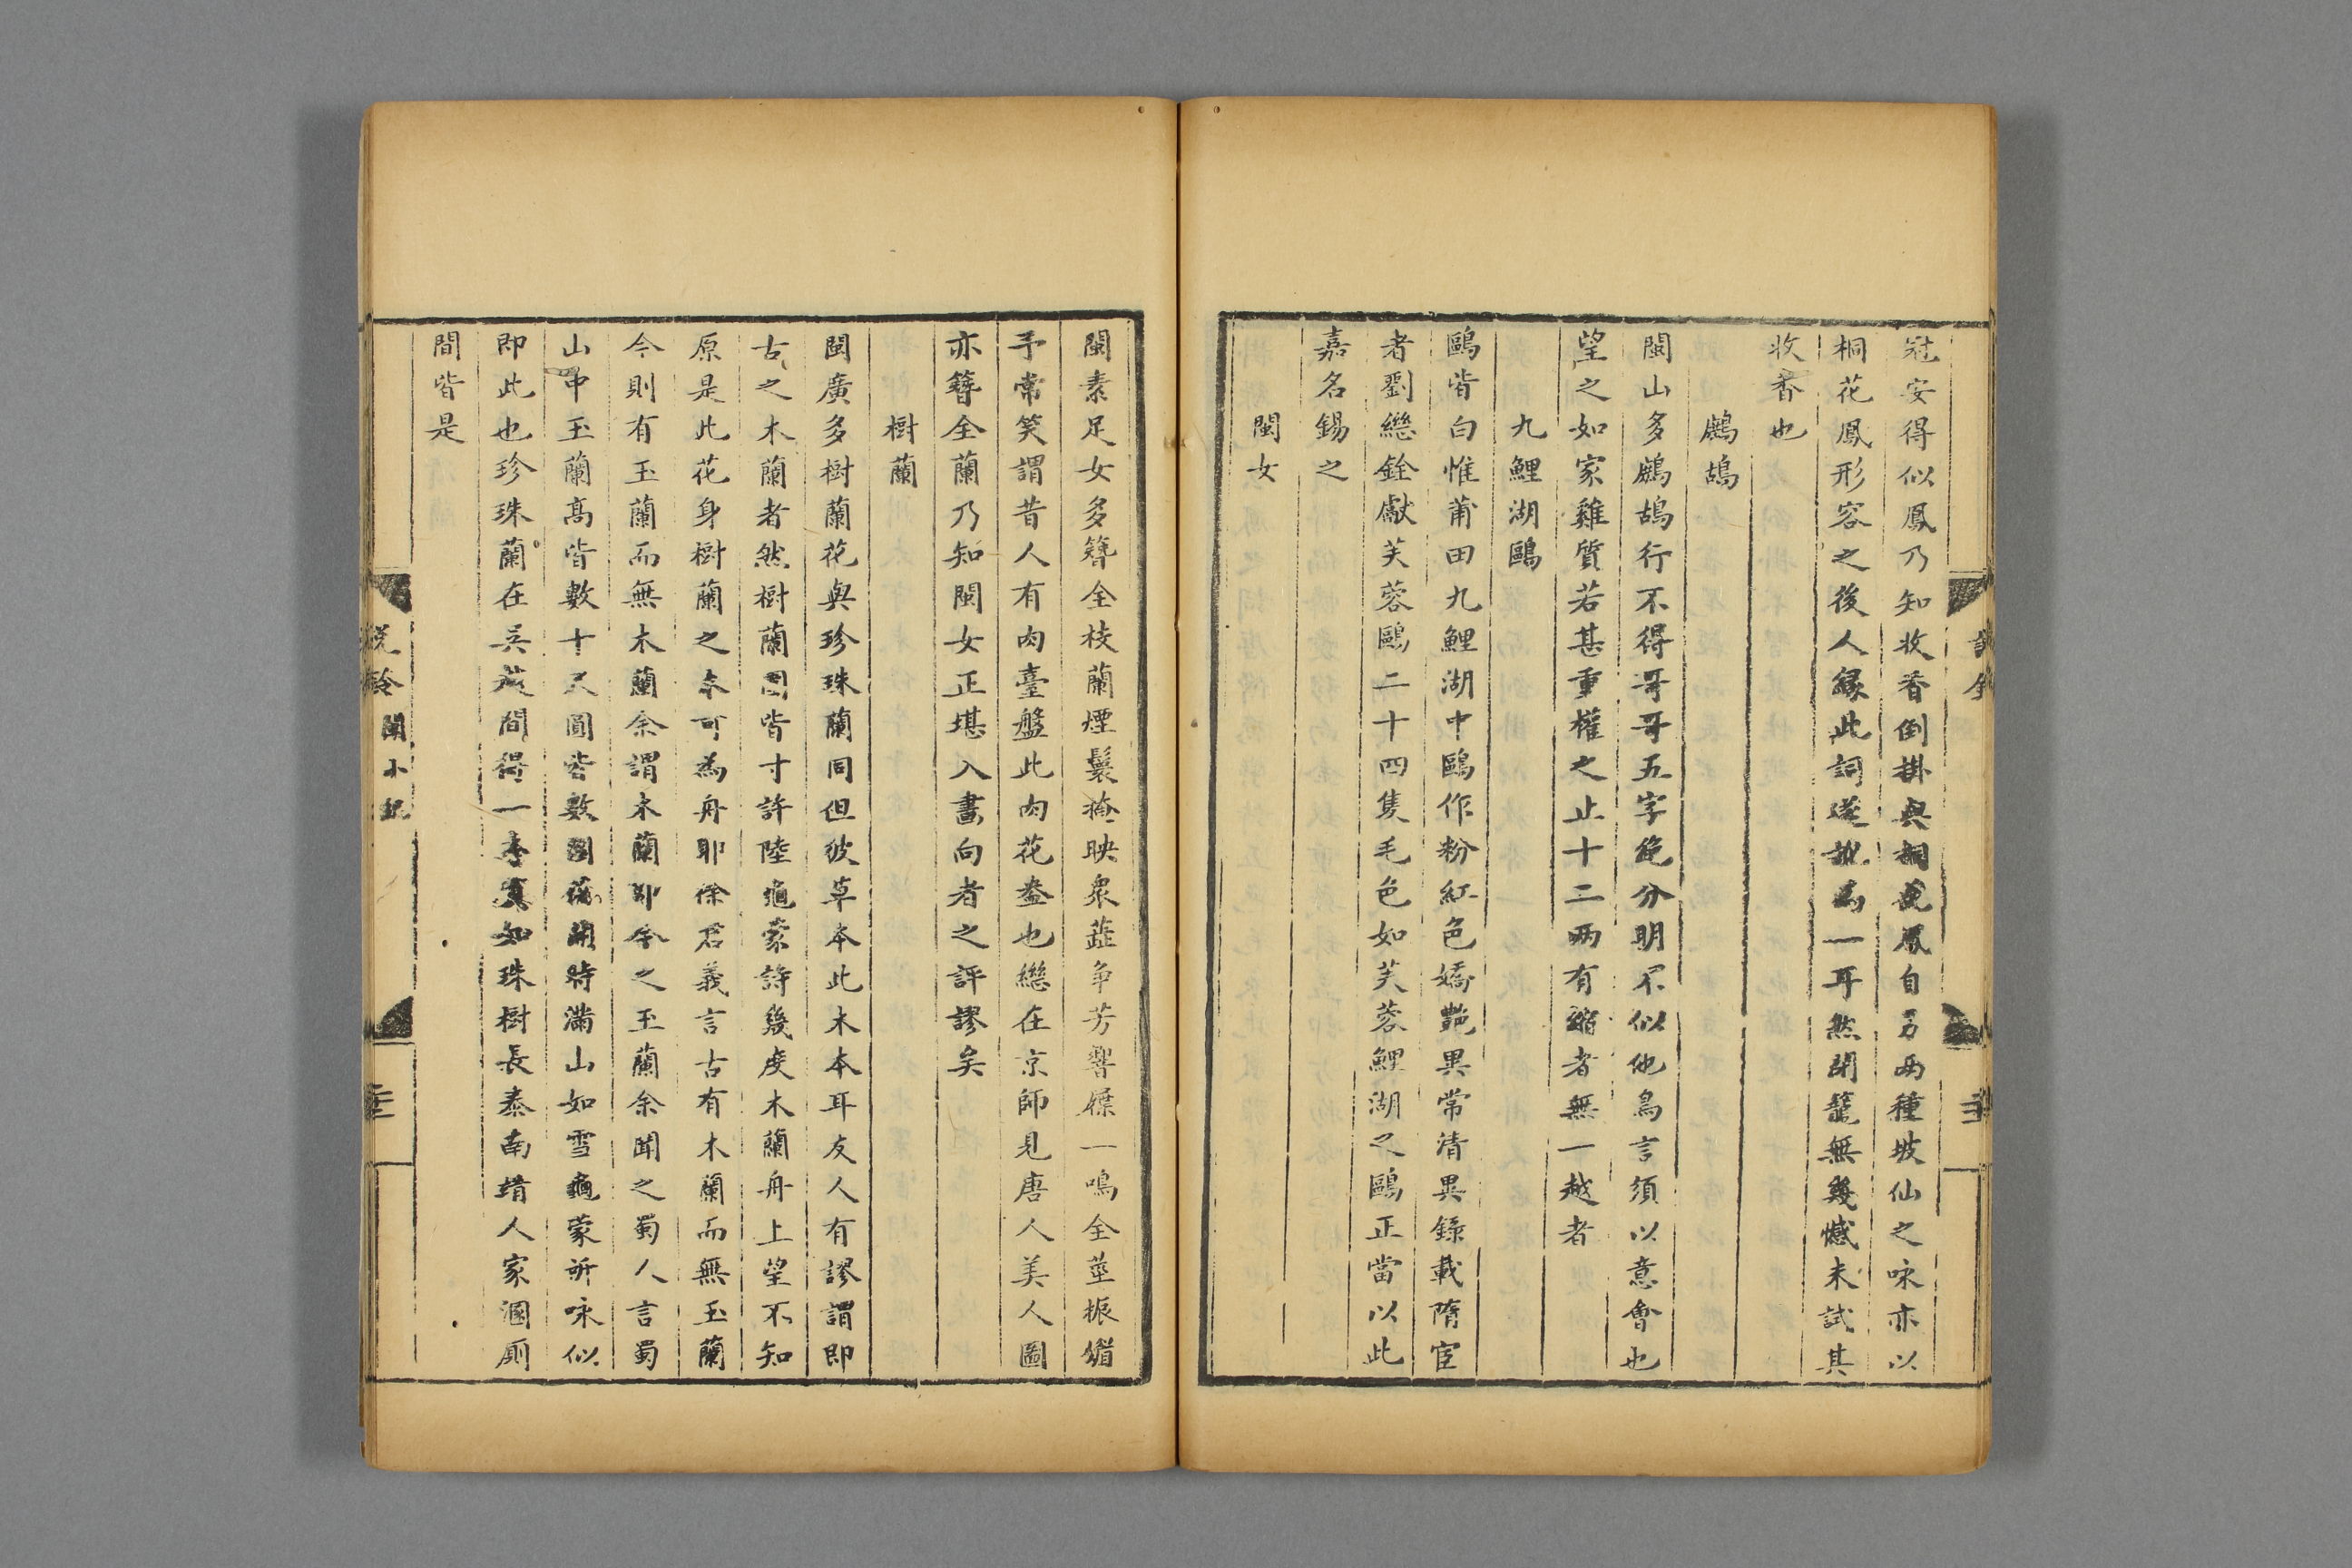 冠安得似鳳乃知收香倒掛與桐花鳳自另兩種坡仙之咏亦以
桐花鳳形容之後人緣此詞遂訛為一耳然閉籠無幾憾未試其
收香也
鷓鴣
閩山多鷓鴣行不得哥哥五字絶分明不似他鳥言須以意會也
望之如家雞質若甚重權之止十二兩有縮者無一越者
九鯉湖鷗
鷗皆白惟莆田九鯉湖中鷗作粉紅色嬌艷異常清異錄載隋宦
者劉繼銓獻芙蓉鷗二十四隻毛色如芙蓉鯉湖之鷗正當以此
嘉名錫之
閩女
閩素足女多簪全枝蘭煙鬟掩映衆蘂争芳響屧一鳴全莖振媚
予常笑謂昔人有肉臺盤此肉花盎也繼在京師見唐人美人圖
亦簪全蘭乃知閩女正堪入畫向者之評謬矣
樹蘭
閩廣多樹蘭花與珍珠蘭同但彼草本此木本耳友人有謬謂即
古之木蘭者然樹蘭圍皆寸許陸龜蒙詩幾度木蘭舟上望不知
原是此花身樹蘭之本可為舟耶徐君義言古有木蘭而無玉蘭
今則有玉蘭而無木蘭余謂木蘭即今之玉蘭余聞之蜀人言蜀
山中玉蘭高皆數十丈圓皆數圍花開時滿山如雪龜蒙所咏似
即此也珍珠蘭在吳燕間得一本真如珠樹長泰南靖人家溷厠
間皆是
說鈴 閩小紀